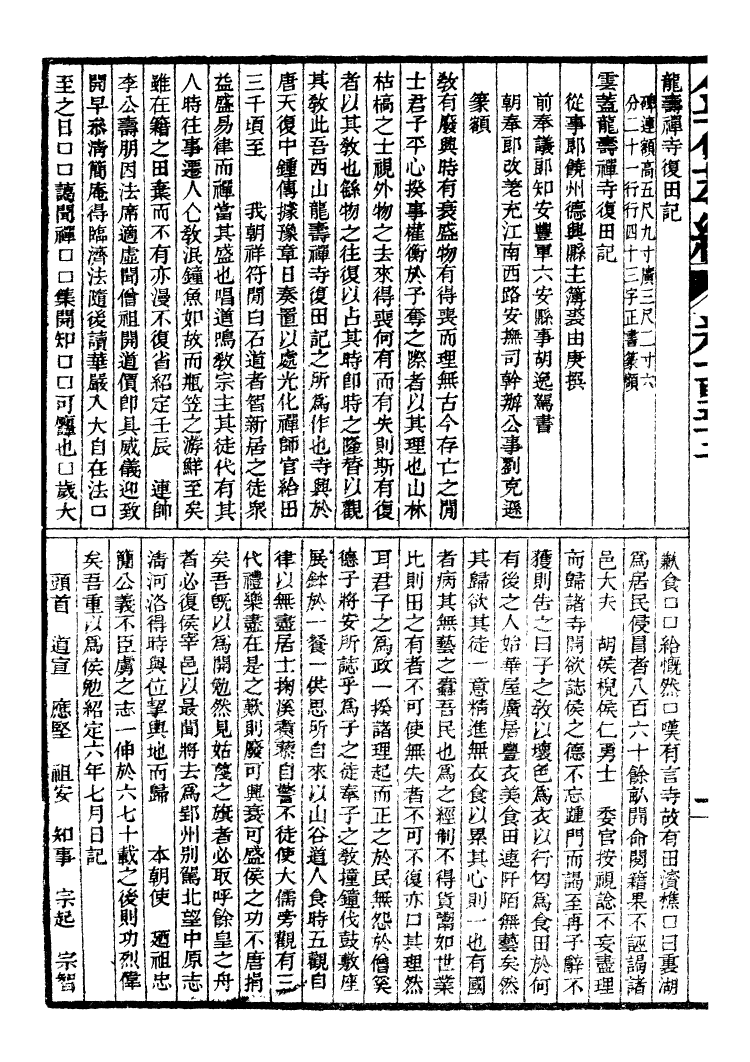 龍壽禪寺復田記
碑連額高五尺九寸廣三尺二寸六
分二十一行行四十三字正書篆額
雲蓋龍壽禪寺復田記
從事郎饒州德興縣主簿裘由庚撰
前奉議郎知安豐軍六安縣事胡逸駕書
朝奉郎改差充江南西路安撫司幹辦公事劉克遜
篆額
教有廢興時有衰盛物有得喪而理無古今存亡之閒
士君子平心揆事權衡於予奪之際者以其理也山林
枯槁之士視外物之去來得喪何有而有失則斯有復
者以其教也繇物之往復以占其時卽時之隆替以觀
其教此吾西山龍壽禪寺復田記之所爲作也寺興於
唐天復中鍾傳據豫章日奏置以處光化禪師官給田
三千頃至　我朝祥符閒白石道者智新居之徒衆
益盛易律而禪當其盛也唱道鳴教宗主其徒代有其
人時往事遷人亾教泯鐘魚如故而瓶笠之游鮮至矣
雖在籍之田棄而不有亦漫不復省紹定壬辰　連帥
李公壽朋因法席適虛聞僧祖開道價卽具威儀迎致
開早叅淸簡庵得臨濟法隨後讀華嚴入大自在法口
至之日口口蕩聞禪口口集開知口口可也口歲大
歉食口口給慨然口嘆有言寺故有田濱樵口曰裏湖
爲居民侵冒者八百六十餘畝開命閱籍果不誣謁諸
邑大夫　胡侯棿侯仁勇士　委官按視諗不妄盡理
而歸諸寺開欲誌侯之德不忘踵門而謁至再予辭不
獲則告之曰子之教以壞色爲衣以行匄爲食田於何
有後之人始華屋廣居豐衣美食田連阡陌無藝矣然
其歸欲其徒一意精進無衣食以累其心則一也有國
者病其無藝之蠹吾民也爲之經制不得貨鬻如世業
比則田之有者不可使無失者不可不復亦口其理然
耳君子之爲政一揆諸理起而正之於民無怨於僧奚
德子將安所誌乎爲子之徒奉子之教撞鐘伐鼓敷座
展鉢於一餐一供思所自來以山谷道人食時五觀自
律以無盡居士掬溪煑藜自警不徒使大儒旁觀有三
代禮樂盡在是之歎則廢可興衰可盛侯之功不唐捐
矣吾旣以爲開勉然見姑篾之旗者必取呼餘皇之舟
者必復侯宰邑以最聞將去爲鄂州別駕北望中原志
淸河洛得時與位挈輿地而歸　本朝使　廼祖忠
簡公義不臣虜之志一伸於六七十載之後則功烈偉
矣吾重以爲侯勉紹定六年七月日記
頭首　道宣　應堅　祖安　知事　宗起　宗智